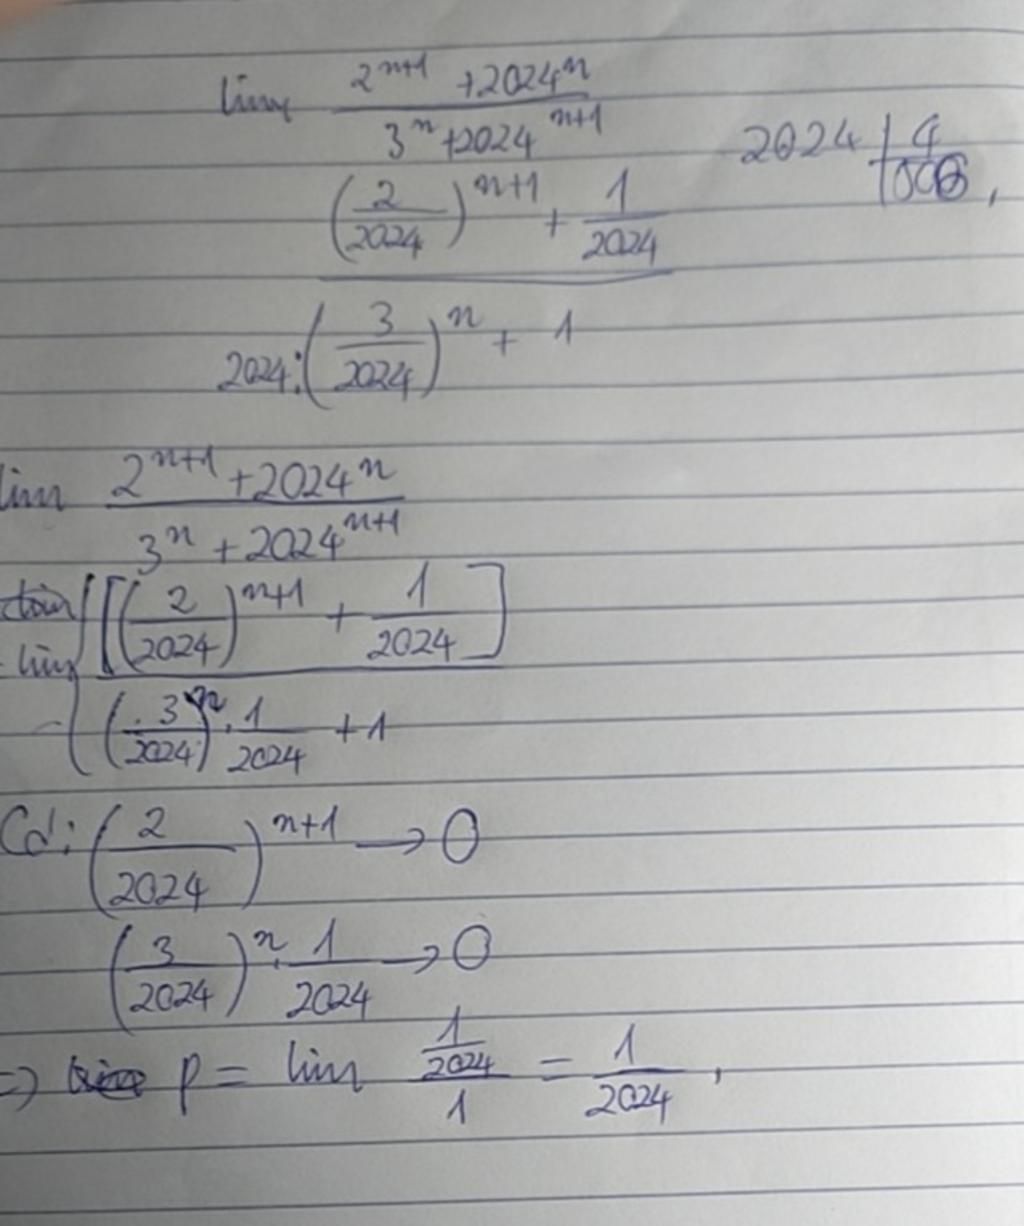 lim (2^{n+1} + 2024^n) / (3^n + 2024^{n+1})
2024 | 4
((2/2024)^{n+1} + 1/2024) / (2024:(3/2024)^n + 1)
lim (2^{n+1} + 2024^n) / (3^n + 2024^{n+1})
lim ([(2/2024)^{n+1} + 1/2024]) / ((3/2024)^n . 1/2024 + 1)
(2/2024)^{n+1} → 0
(3/2024)^n . 1/2024 → 0
=> P = lim (1/2024)/1 = 1/2024 ,